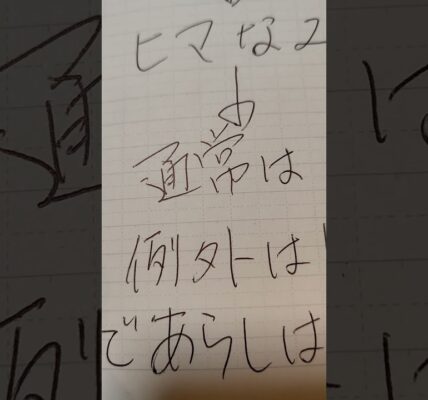 ヒマな
通常は
例外は
であらしは